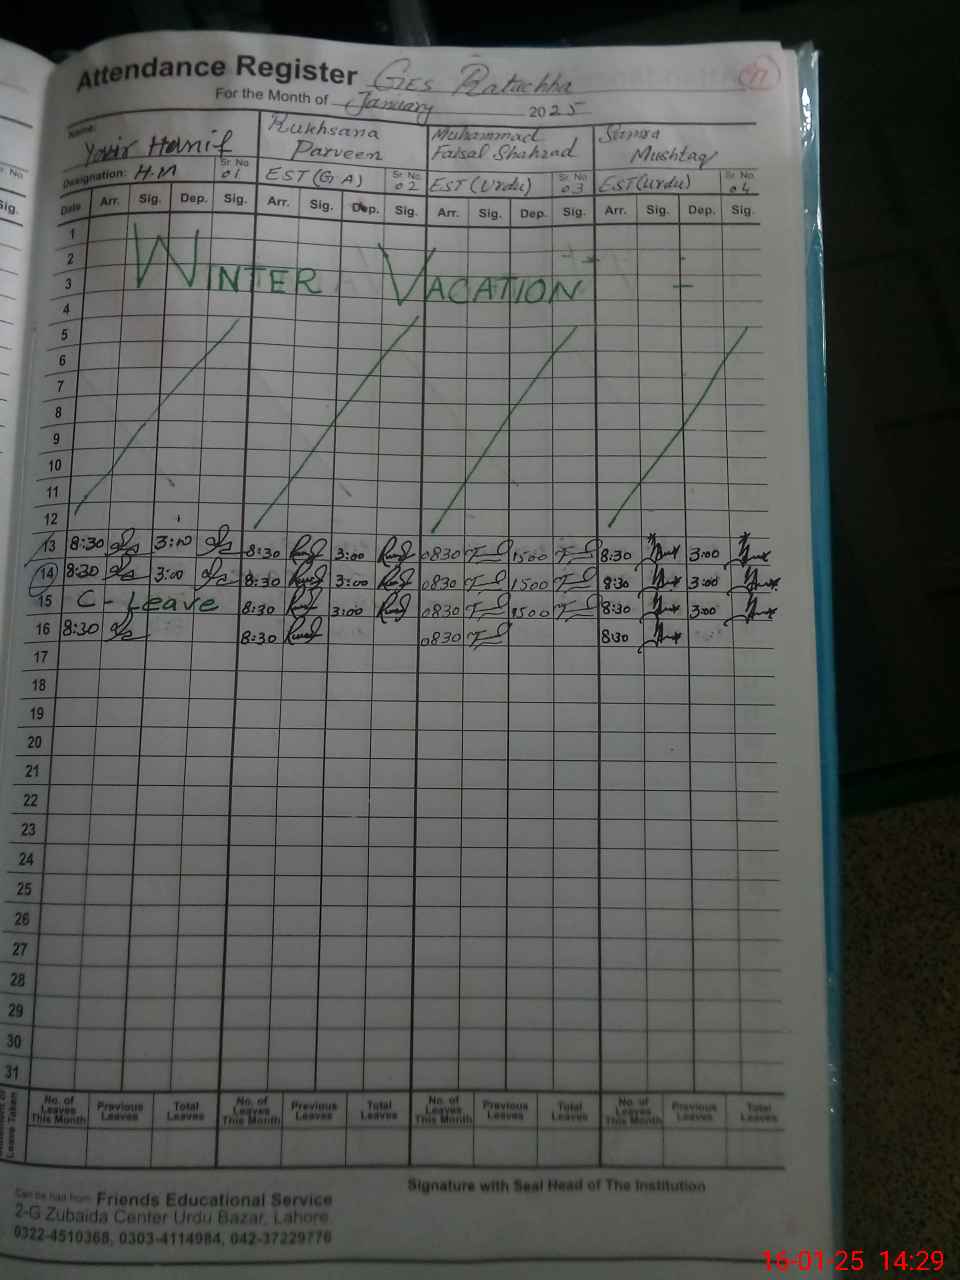 Attendance Register GES Ratachha
For the Month of January 2025
Name: Yasir Hanif Rukhsana Parveen Muhammad Faisal Shahzad Samra Mushtaq
Designation: H.M Sr. No. 01 EST (G.A) Sr. No. 02 EST (Urdu) Sr. No. 03 EST (Urdu) Sr. No. 04
Date Arr. Sig. Dep. Sig. Arr. Sig. Dep. Sig. Arr. Sig. Dep. Sig. Arr. Sig. Dep. Sig.
1
2
WINTER VACATION
3
4
5
6
7
8
9
10
11
12
13 8:30 3:00 8:30 3:00 0830 1500 8:30 3:00
14 8:30 3:00 8:30 3:00 0830 1500 8:30 3:00
15 C - Leave 8:30 3:00 0830 1500 8:30 3:00
16 8:30 8:30 0830 8:30
17
18
19
20
21
22
23
24
25
26
27
28
29
30
31
Leave Taken No. of Leaves This Month Previous Leaves Total Leaves No. of Leaves This Month Previous Leaves Total Leaves No. of Leaves This Month Previous Leaves Total Leaves No. of Leaves This Month Previous Leaves Total Leaves
Signature with Seal Head of The Institution
Can be had from: Friends Educational Service
2-G Zubaida Center Urdu Bazar, Lahore.
0322-4510368, 0303-4114984, 042-37229776
16-01-25 14:29